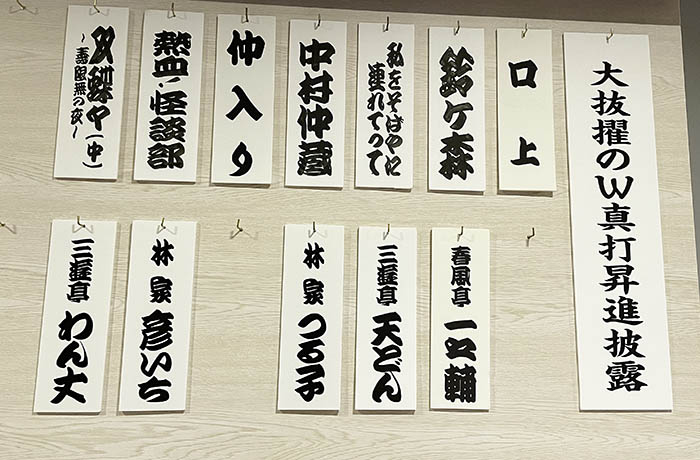 大抜擢のW真打昇進披露
口上
鈴ケ森
春風亭 一之輔
私をそばやに
連れてって
三遊亭 天どん
中村仲蔵
林家 つる子
仲入り
熱血!怪談部
林家 彦いち
双蝶々(中)
~寿限無の夜~
三遊亭 わん丈